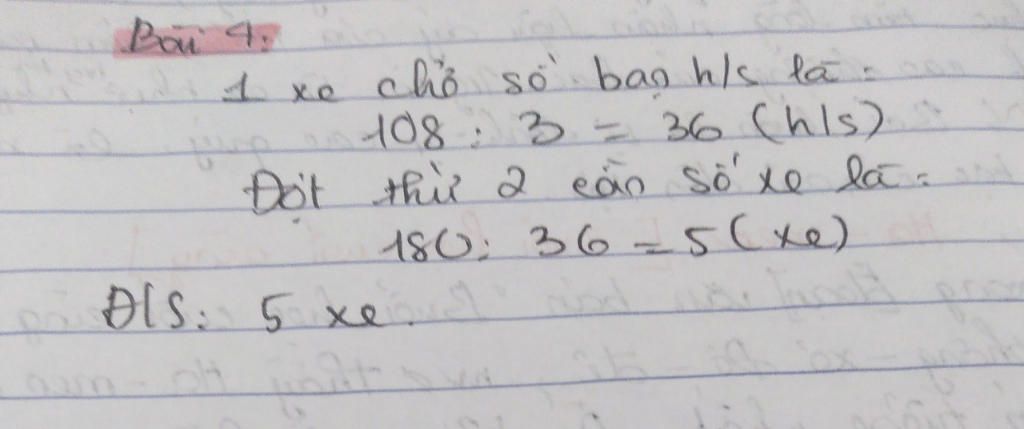 Bài 4:
1 xe chở số bạn h/s là:
108 : 3 = 36 (h/s)
Đợt thứ 2 cần số xe là:
180 : 36 = 5 (xe)
Đ/S: 5 xe.